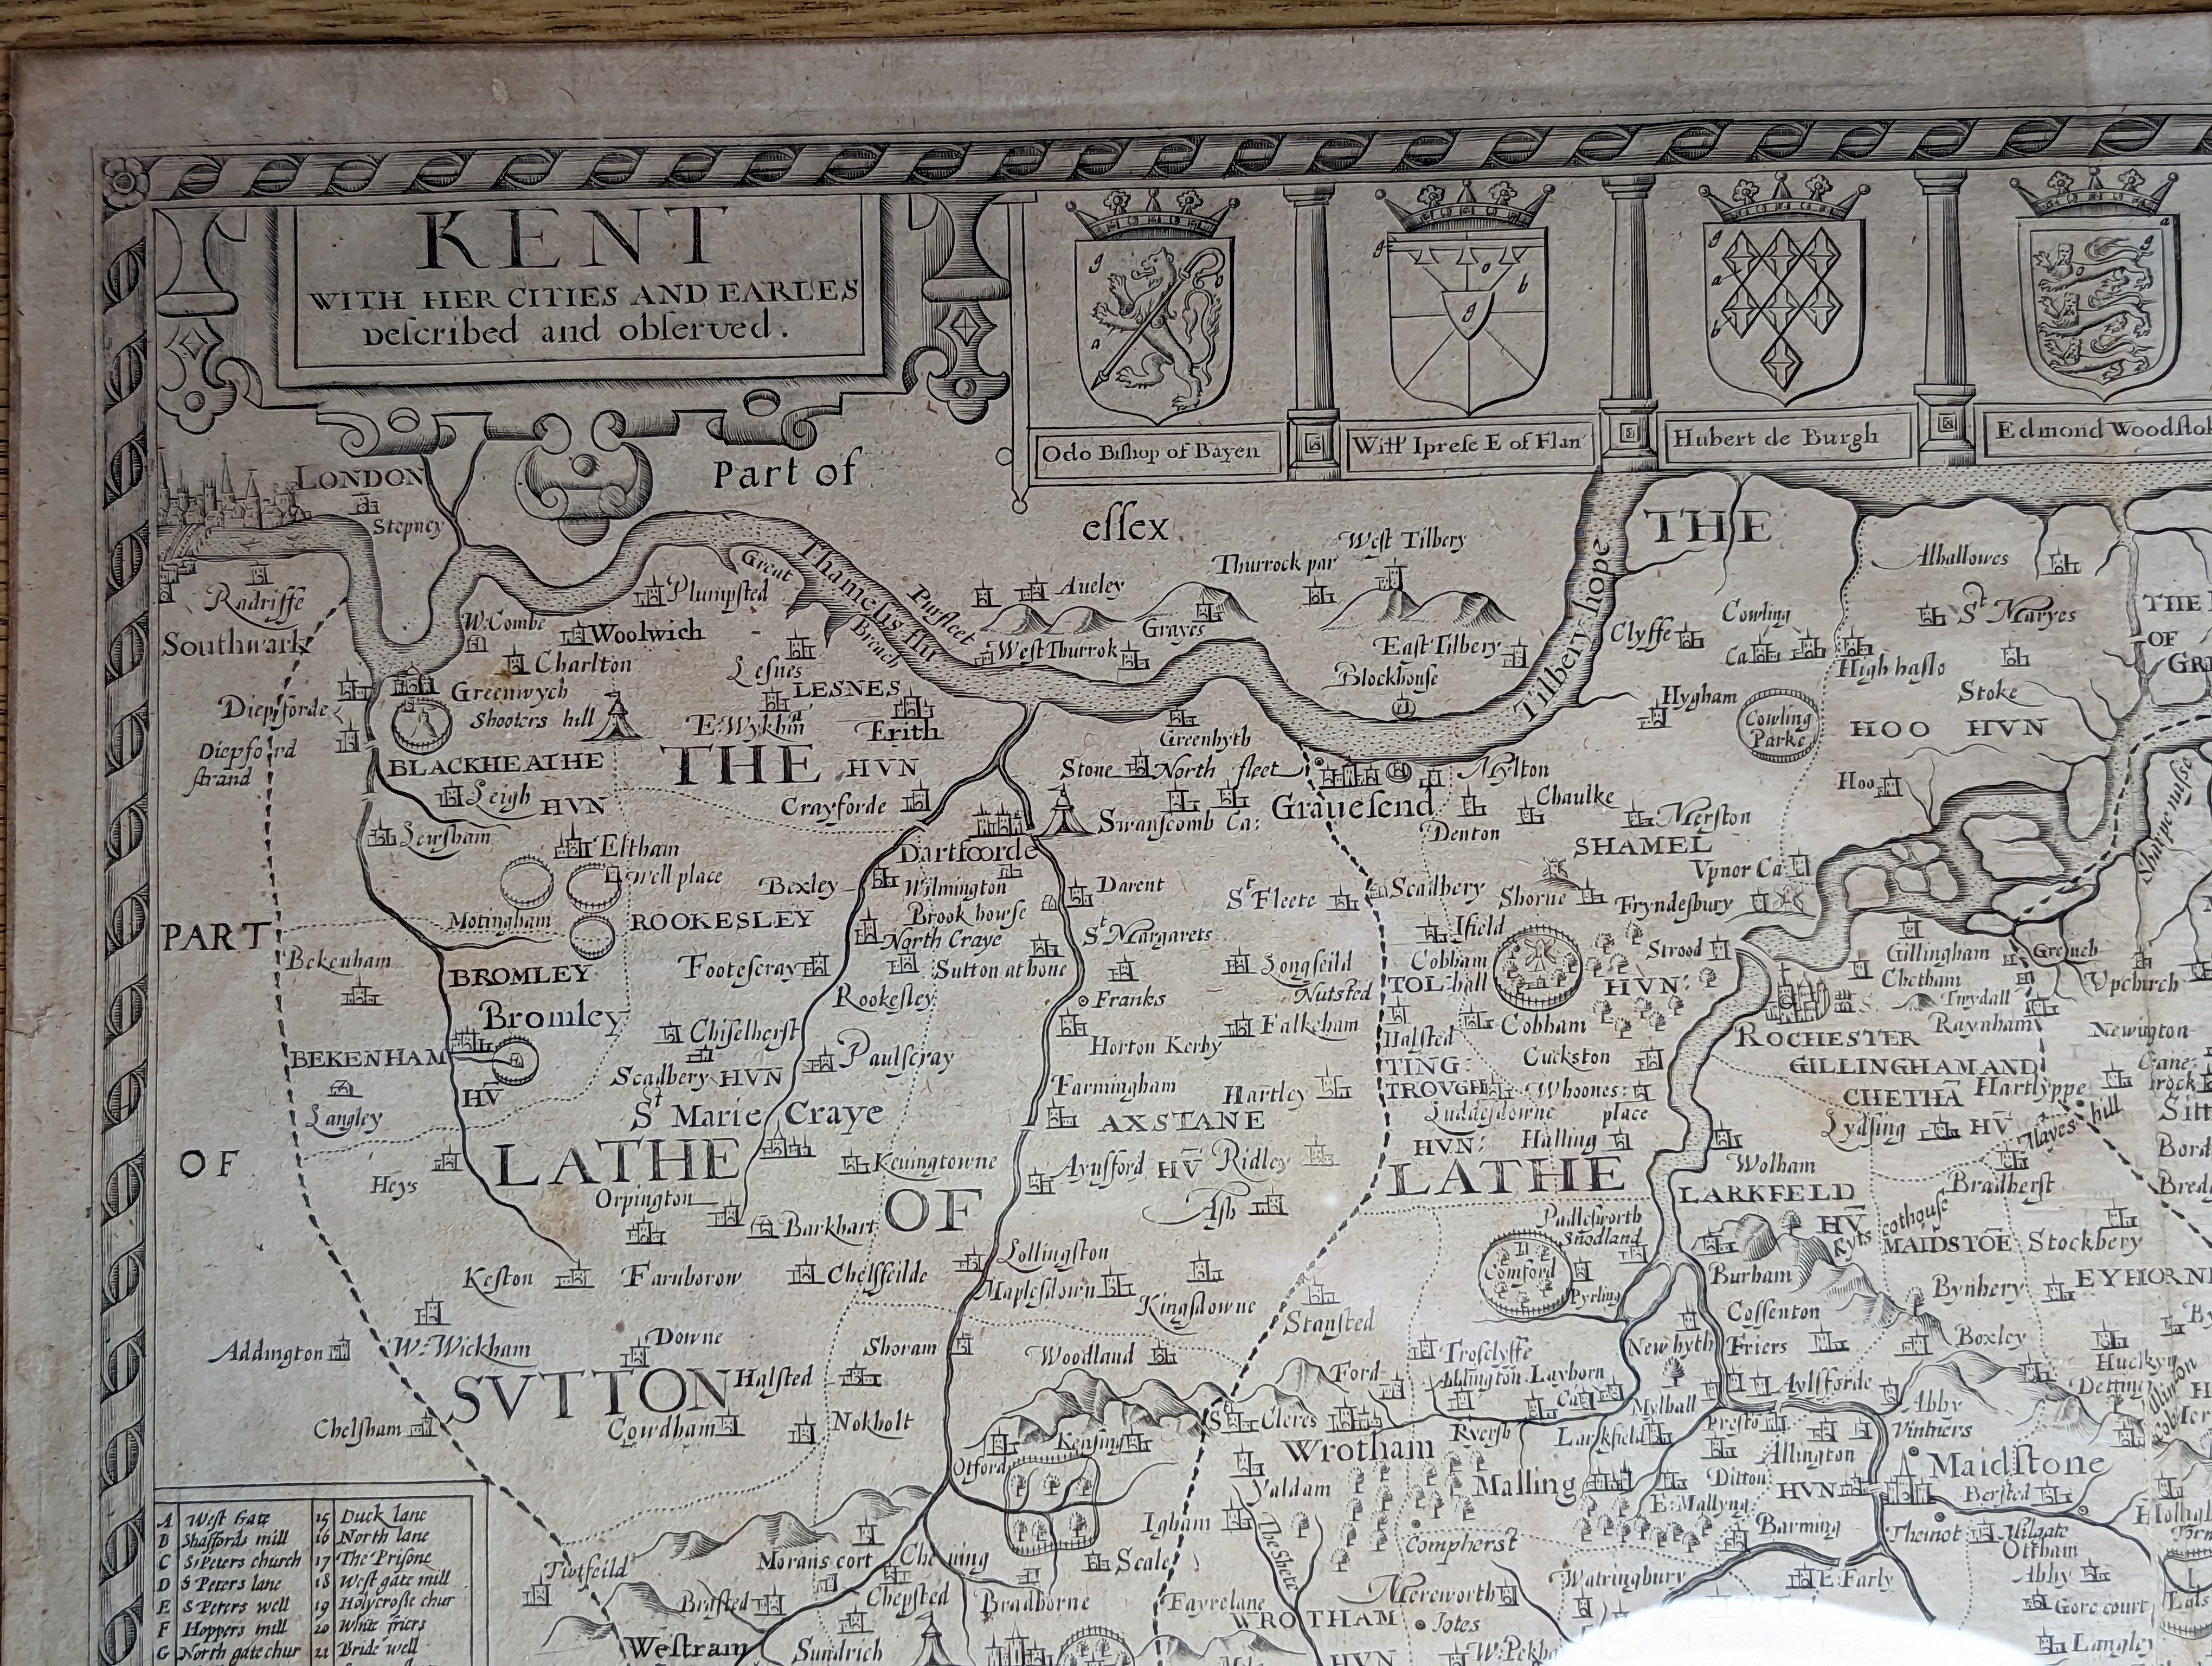 KENT
WITH HER CITIES AND EARLES
Described and observed.
Odo Bishop of Bayen
Will Iprese E of Flan
Hubert de Burgh
Edmond Woodstok
g
a
b
g
o
b
g
g
a
b
a
g
LONDON
Stepney
Part of
essex
THE
Radriffe
Southwark
West Tilbery
Thurrock par
Alhallowes
Great
Breach
Thamesis flu
Pursleet
Aueley
Plumpsted
W:Combe
Woolwich
Charlton
Lesnes
West Thurrok
Grayes
East Tilbery
Blockhouse
Tilbery hope
Clyffe
Cowling
Ca
St Maryes
High halso
Stoke
THE
OF
GRE
Diepforde
Greenwych
Shooters hill
LESNES
E:Wykhin
Erith
Greenhyth
Hygham
Cowling
Parke
HOO HVN
Diepford
strand
BLACKHEATHE
HVN
Leigh
THE HVN
Crayforde
Stone
North fleet
Grauesend
Mylton
Chaulke
Hoo
Lewsham
Eltham
well place
Dartfoorde
Swanscomb Ca:
Denton
Merston
SHAMEL
Sharpe nasse
PART
Motingham
ROOKESLEY
Bexley
Wilmington
Brook howse
North Craye
Darent
St Fleete
Scadbery
Shorne
Fryndesbury
Vpnor Ca
Bekenham
BROMLEY
Footescray
Sutton at hone
St Margarets
Longfeild
Ifield
Cobham
hall
TOL
HVN:
Strood
Gillingham
Chetham
Greneh
Vpchirch
Bromley
Rookesley
Franks
Nutsted
Falkeham
Halsted
Cobham
Twydall
Raynham
Newington
BEKENHAM
HV
Chiselherst
Scadbery HVN
Paulscray
Horton Kerby
TING
TROVGH
Cuckston
ROCHESTER
GILLINGHAM AND
CHETHA
HV
Langley
St Marie Craye
Farmingham
Hartley
AXSTANE
HV
Luddesdowne
Whoones:
place
Hartlyppe
Lydsing
Hayes hill
OF
LATHE
OF
Heys
Keuingtowne
Aynsford
Ridley
HVN:
Halling
LATHE
Wolham
Bradherst
Bred
Orpington
Barkhart
Ash
LARKFELD
HV
Kyts cothouse
MAIDSTOE
Stockbery
Padlesworth
Snodland
Keston
Farnborow
Chelsfeilde
Lollingston
Maplesdown
Kingsdowne
Stansted
Comford
Pyrling
Burham
Cossenton
Bynbery
EYHORN
Addington
W:Wickham
Downe
Shoram
Woodland
Trosclyffe
New hyth
Friers
Boxley
SVTTON
Halsted
Ford
Addington
Layborn
Ca
Aylsforde
Chelsham
Cowdham
Nokholt
St Cleres
Wrotham
Ryersh
Larkfield
Mylhall
Presto
Abby
Vintners
Otford
Kensing
Yaldam
Malling
Allington
Ditton
HVN
Maidstone
Bersted
Igham
The Shete
E:Mallyng
Compherst
Barming
Theinot
Milgate
Ottham
Titsfeild
Morans cort
Scale
Watringbury
E:Farly
Abby
Brasted
Chepsted
Bradborne
Fayrelane
Mereworth
Gore court
Westram
Sundrich
WROTHAM
HVN
Jotes
Langley
A West Gate 15 Duck lane
B Shaffords mill 16 North lane
C S Peters church 17 The Prisone
D S Peters lane 18 West gate mill
E S Peters well 19 Holycrosse chur
F Hoppers mill 20 White friers
G North gate chur 21 Bride well